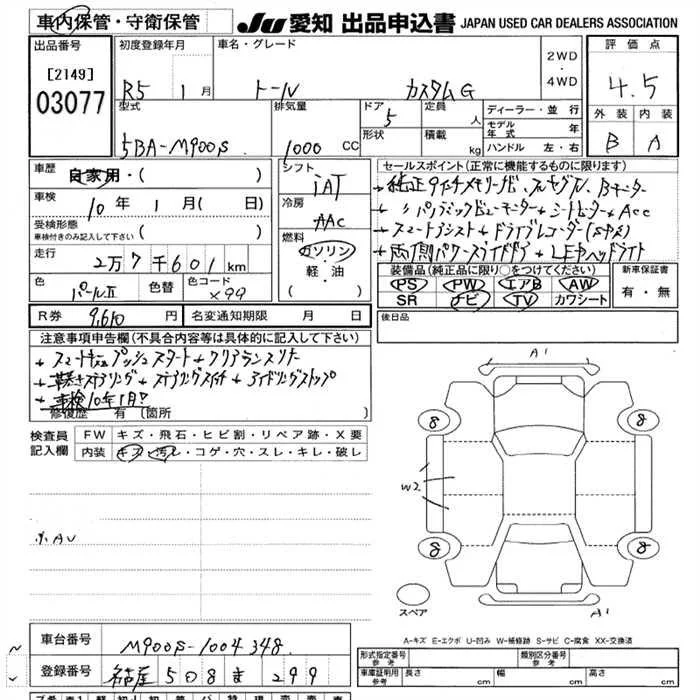 車内保管・守衛保管 JU 愛知 出品申込書 JAPAN USED CAR DEALERS ASSOCIATION
出品番号 初度登録年月 車名・グレード 評価点
[2149] R5 1月 トール カスタムG 2WD・4WD 4.5
03077 型式 排気量 ドア 5 定員 人 ディーラー・並行 外装 内装
5BA-M900S 1000 CC 形状 積載 kg モデル年式 年 B A
ハンドル 左・右
車歴 自家用・( ) シフト セールスポイント(正常に機能するものに限ります)
IAT ★純正9インチメモリーナビ、フルセグTV、Bモニター
車検 10年 1月( 日) 冷房 ★〃パノラミックビューモニター★シートヒーター★Acc
受検形態 AAC ★スマートアシスト★ドライブレコーダー
車検付きのみ記入して下さい ( ) 燃料 ★両側パワースライドドア★LEDヘッドライト
走行 2万7千601km ガソリン 装備品(純正品に限り○をつけてください) 新車保証書
色 パールII 色替 色コード X99 軽・油 PS PW エアB AW 有・無
SR ナビ TV カワシート
R券 9,610円 名変通知期限 月 日 後日品
注意事項申告欄(不具合内容等は具体的に記入して下さい)
★スマートキー プッシュスタート★クリアランスソナー
★革巻きステアリング★ステアリングスイッチ★アイドリングストップ
★車検10年1月
修復歴 有 〔箇所 〕
検査員記入欄 FW キズ・飛石・ヒビ割・リペア跡・X要
内装 キズ・汚レ・コゲ・穴・スレ・キレ・破レ
A1
8 8
W2
8 8
スペア
A1
A-キズ E-エクボ U-凹み W-補修跡 S-サビ C-腐食 XX-交換済
車台番号 M900S-1004348
登録番号 名古屋 508 ま 299
形式指定番号 参考 類別区分番号 参考
車庫証明用 参考 長さ cm 幅 cm 高さ cm